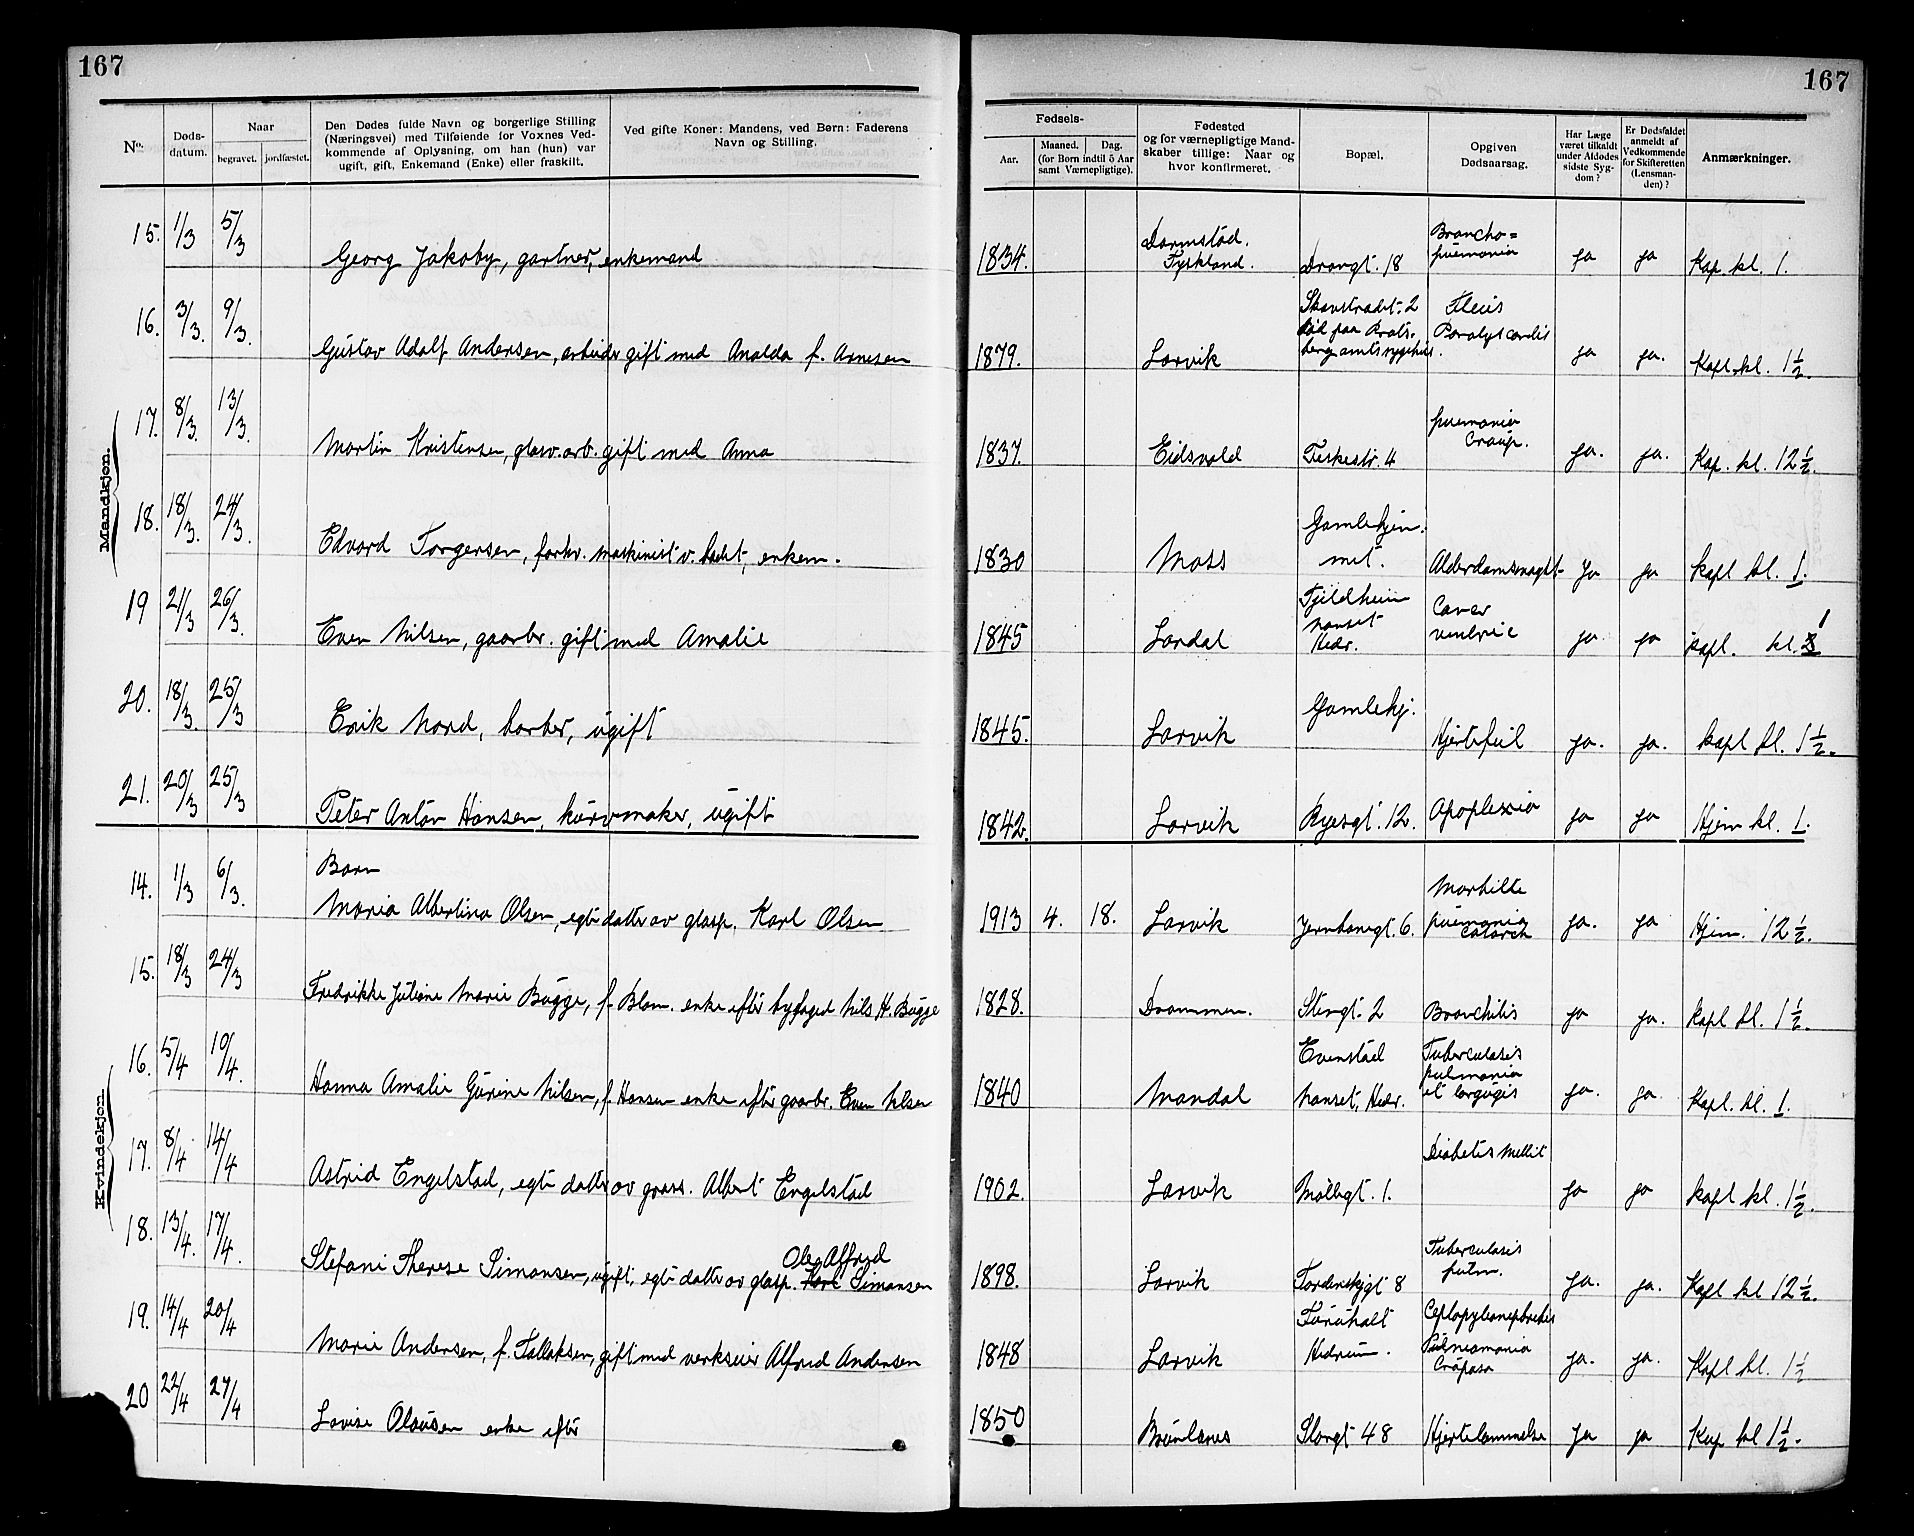 167
167
No.
Døds-
datum.
Naar
begravet.
jordfæstet.
Den Dødes fulde Navn og borgerlige Stilling
(Næringsvei) med Tilføiende for Voxnes Ved-
kommende af Oplysning, om han (hun) var
ugift, gift, Enkemand (Enke) eller fraskilt.
Ved gifte Koner: Mandens, ved Børn: Faderens
Navn og Stilling.
Fødsels-
Aar.
Maaned.
Dag.
(for Børn indtil 5 Aar
samt Værnepligtige).
Fødested
og for værnepligtige Mand-
skaber tillige: Naar og
hvor konfirmeret.
Bopæl.
Opgiven
Dødsaarsag.
Har Læge
været tilkaldt
under Afdødes
sidste Syg-
dom?
Er Dødsfaldet
anmeldt af
Vedkommende
for Skifteretten
(Lensman-
den)?
Anmærkninger.
Mandkjøn.
15. 1/3 5/3 Georg Jakoby, gartner, enkemand 1834. Darmstad. Tyskland. Drangt. 18 Broncho= pnemonia ja ja Kap. kl. 1.
16. 3/3. 9/3. Gustav Adolf Andersen, arbeider gift med Analda f. Arnesen 1879. Larvik Skavstradet. 2 død paa Brats- berg amtssygehus. Ileus Paralys cordis ja ja. Kapl. kl. 1 1/2.
17. 8/3. 13/3. Martin Kristensen, glasv. arb. gift med Anna 1837. Eidsvold Fiskestr. 4 pnemonia Croup. ja. ja. Kap. kl. 12 1/2.
18. 18/3. 24/3. Edvard Torgersen, forhv. maskinist v. badet, enkem. 1830 Moss Gamlehjem- met. Alderdomssvaght. ja ja kapl kl. 1.
19 21/3 26/3. Even Nilsen, gaarbr. gift med Amalie 1845 Lardal Fjeldheim Nanset Hedr. Cancer ventric ja ja kapl. kl. 1
20. 18/3. 25/3 Erik Nord, barber, ugift 1845. Larvik Gamlehj. Hjertefeil ja. ja. kapl kl. 1 1/2.
21. 20/3 25/3 Peter Anton Hansen, kurvmaker, ugift 1842. Larvik Ryesgt. 12. Apoplexia ja ja Hjem kl. 1.
Kvindekjøn.
Barn
14. 1/3 6/3. Maria Albertina Olsen, egte datter av glasp. Karl Olsen 1913 4. 18. Larvik Jernbanegt. 6. Morbilte pnemonia Catarch ja. ja Hjem. 12 1/2.
15. 18/3 24/3 Fredrikke Juliane Marie Bugge, f. Blom. enke efter byfoged Nils H. Bugge 1828. Drammen. Stengt. 2 Bronchitis ja ja. kapl kl. 1 1/2.
16. 5/4 10/4. Hanna Amalie Gurine Nilsen, f. Hansen enke efter gaarbr. Even Nilsen 1840 Mandal Evenstad Nanset, Hedr. Tuberculosis pulmonia et ja. ja Kapl. kl. 1.
17. 8/4 14/4 Astrid Engelstad, egte datter av Albert Engelstad 1902. Larvik Møllegt. 1. Diabetis Mellit ja ja kapl kl. 1 1/2.
18. 13/4. 17/4. Stefani Therese Simonsen, ugift, egte datter av glasp. Karl Ole Alfred Simonsen 1898. Larvik Tordenskjgt 8 Tuberculosis pulm. ja. ja. Kapl kl 12 1/2.
19. 14/4 20/4 Marie Andersen, f. Tallaksen, gift med verkseier Alfred Andersen 1848 Larvik Furuholt Hedrum. Pulneomonia Crøposa ja. ja. Kapl kl. 1 1/2
20 22/4 27/4 Lovise Olausen enke efter 1850 Brunlanes Storgt 48 Hjertelammelse ja ja Kap kl 1 1/2.